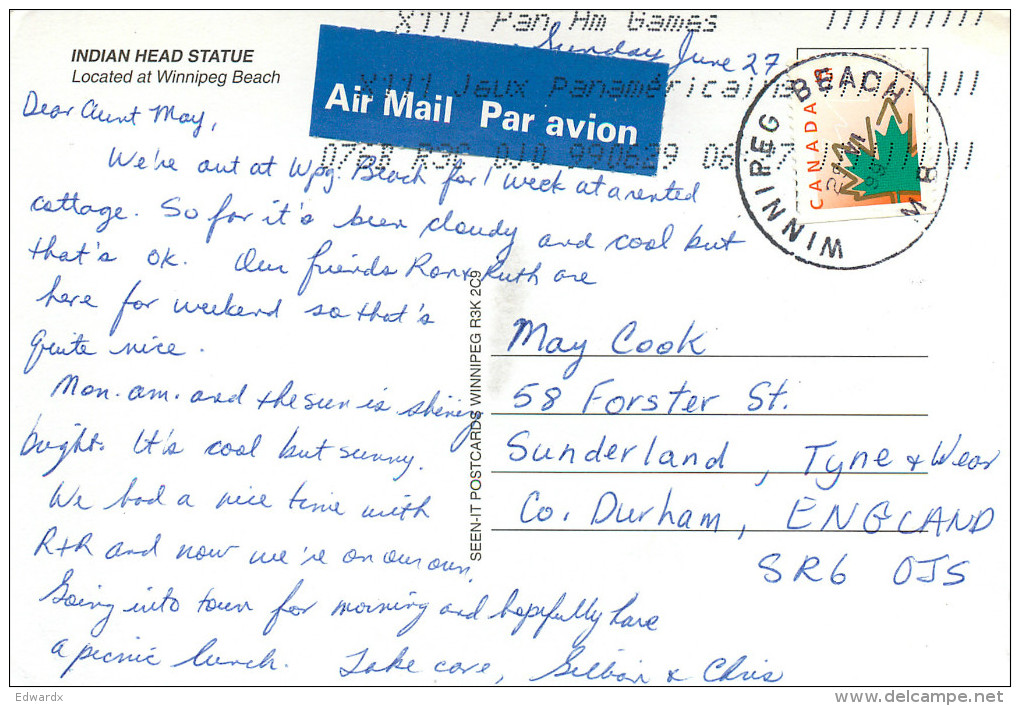 X111 Pan Am Games
INDIAN HEAD STATUE
Located at Winnipeg Beach
Air Mail Par avion
X111 Jeux Panaméricains
Sunday June 27
CANADA
WINNIPEG BEACH
MB
29 VI
99
Dear Aunt May,
We're out at Wpg. Beach for 1 week at a rented
cottage. So far it's been cloudy and cool but
that's ok. Our friends Ron & Ruth are
here for weekend so that's
quite nice.
Mon. am. and the sun is shining
bright. It's cool but sunny.
We had a nice time with
R+R and now we're on our own.
Going into town for morning and hopefully have
a picnic lunch. Take care, Gillian & Chris
SEEN-IT POSTCARDS WINNIPEG R3K 2C9
May Cook
58 Forster St.
Sunderland, Tyne & Wear
Co. Durham, ENGLAND
SR6 0JS
Edwardx
www.delcampe.net